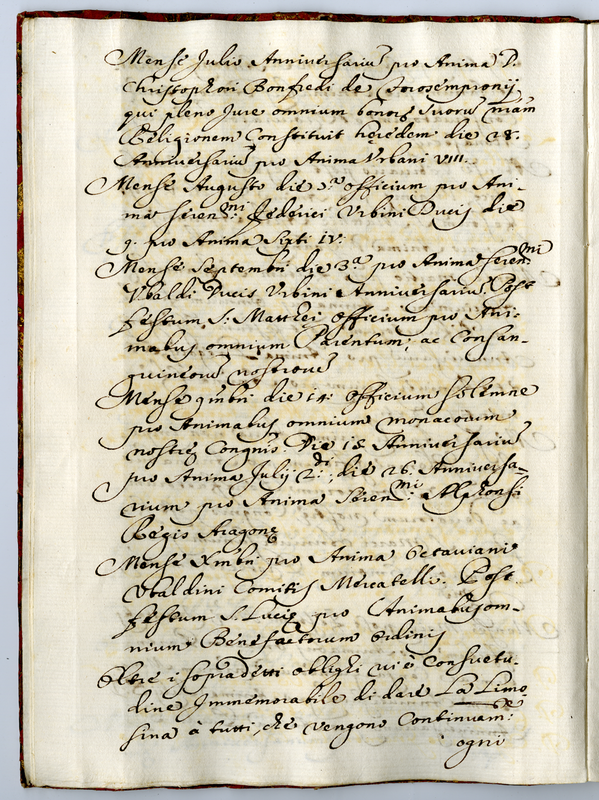 Mense Julio Anniversariu pro Anima D.
Christophori Bonfredi de Forosempronij
qui pleno Jure omnium bonor Suoru nram
Religionem Constituit heredem die 28.
Anniversariu pro Anima Urbani VIII.
Mense Augusto die 3.a officium pro Ani-
ma Seren.mi Federici Urbini Ducis die
9. pro Anima Sixti IV.
Mense Septembri die 3.a pro Anima Seren.mi
Ubaldi Ducis Urbini Anniversariu. Post
festum S. Matthei officium pro Ani-
mabus omnium Parentum, ac Consan-
guineoru nostroru
Mense 9mbri die 14. officium solemne
pro Animabus omnium monacorum
nostre Congnis. Die 18 Anniversariu
pro Anima Julij 2.di, die 26. Anniversa-
rium pro Anima Seren.mi Alphonsi
Regis Aragone
Mense Xmbri pro Anima Octaviani
Ubaldini Comitis Mercatelli. Post
festum S. Lucie pro Animabus om-
nium Benefactorum Ordinis
Oltre i sopradetti oblighi vi è Consuetu-
dine Immemorabile di dare La Limo
sina à tutti, che vengono Continuam.e
ogni